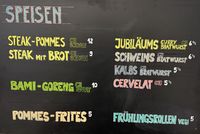 SPEISEN
STEAK-POMMES 12
STEAK MIT BROT 9
BAMI-GORENG 10
POMMES-FRITES 5
JUBILÄUMS CURRY BRATWURST 6
SCHWEINS BRATWURST
KALBS BRATWURST
CERVELAT
FRÜHLINGSROLLEN VEGI